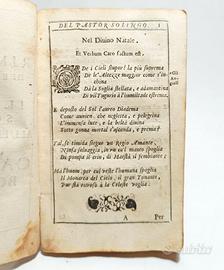 DEL PASTOR SOLINGO. 1
Nel Divino Natale.
Et Verbum Caro factum est.
De i Cieli stupor! la più suprema
De le Altezze maggior come s'in-
china
Da la Soglia stellata, e adamantina
Di vil Tugurio à l'humiltade estrema.
E deposto del Sol l'aureo Diadema
Come auvien, che negletta, e pellegrina
L'immensa luce, e la beltà divina
Sotto gonna mortal s'asconda, e prema?
Tal, se timida siegue un Regio Amante
Ninfa selvaggia, in un ei l'manto spoglia
Di pompa il crin, di Maestà il sembiante;
Ma l'huom, per cui veste l'humana spoglia
Il Monarca del Cielo, il gran Tonante,
Pur stà ritroso à la Celeste voglia.
A Per
Gli
subito